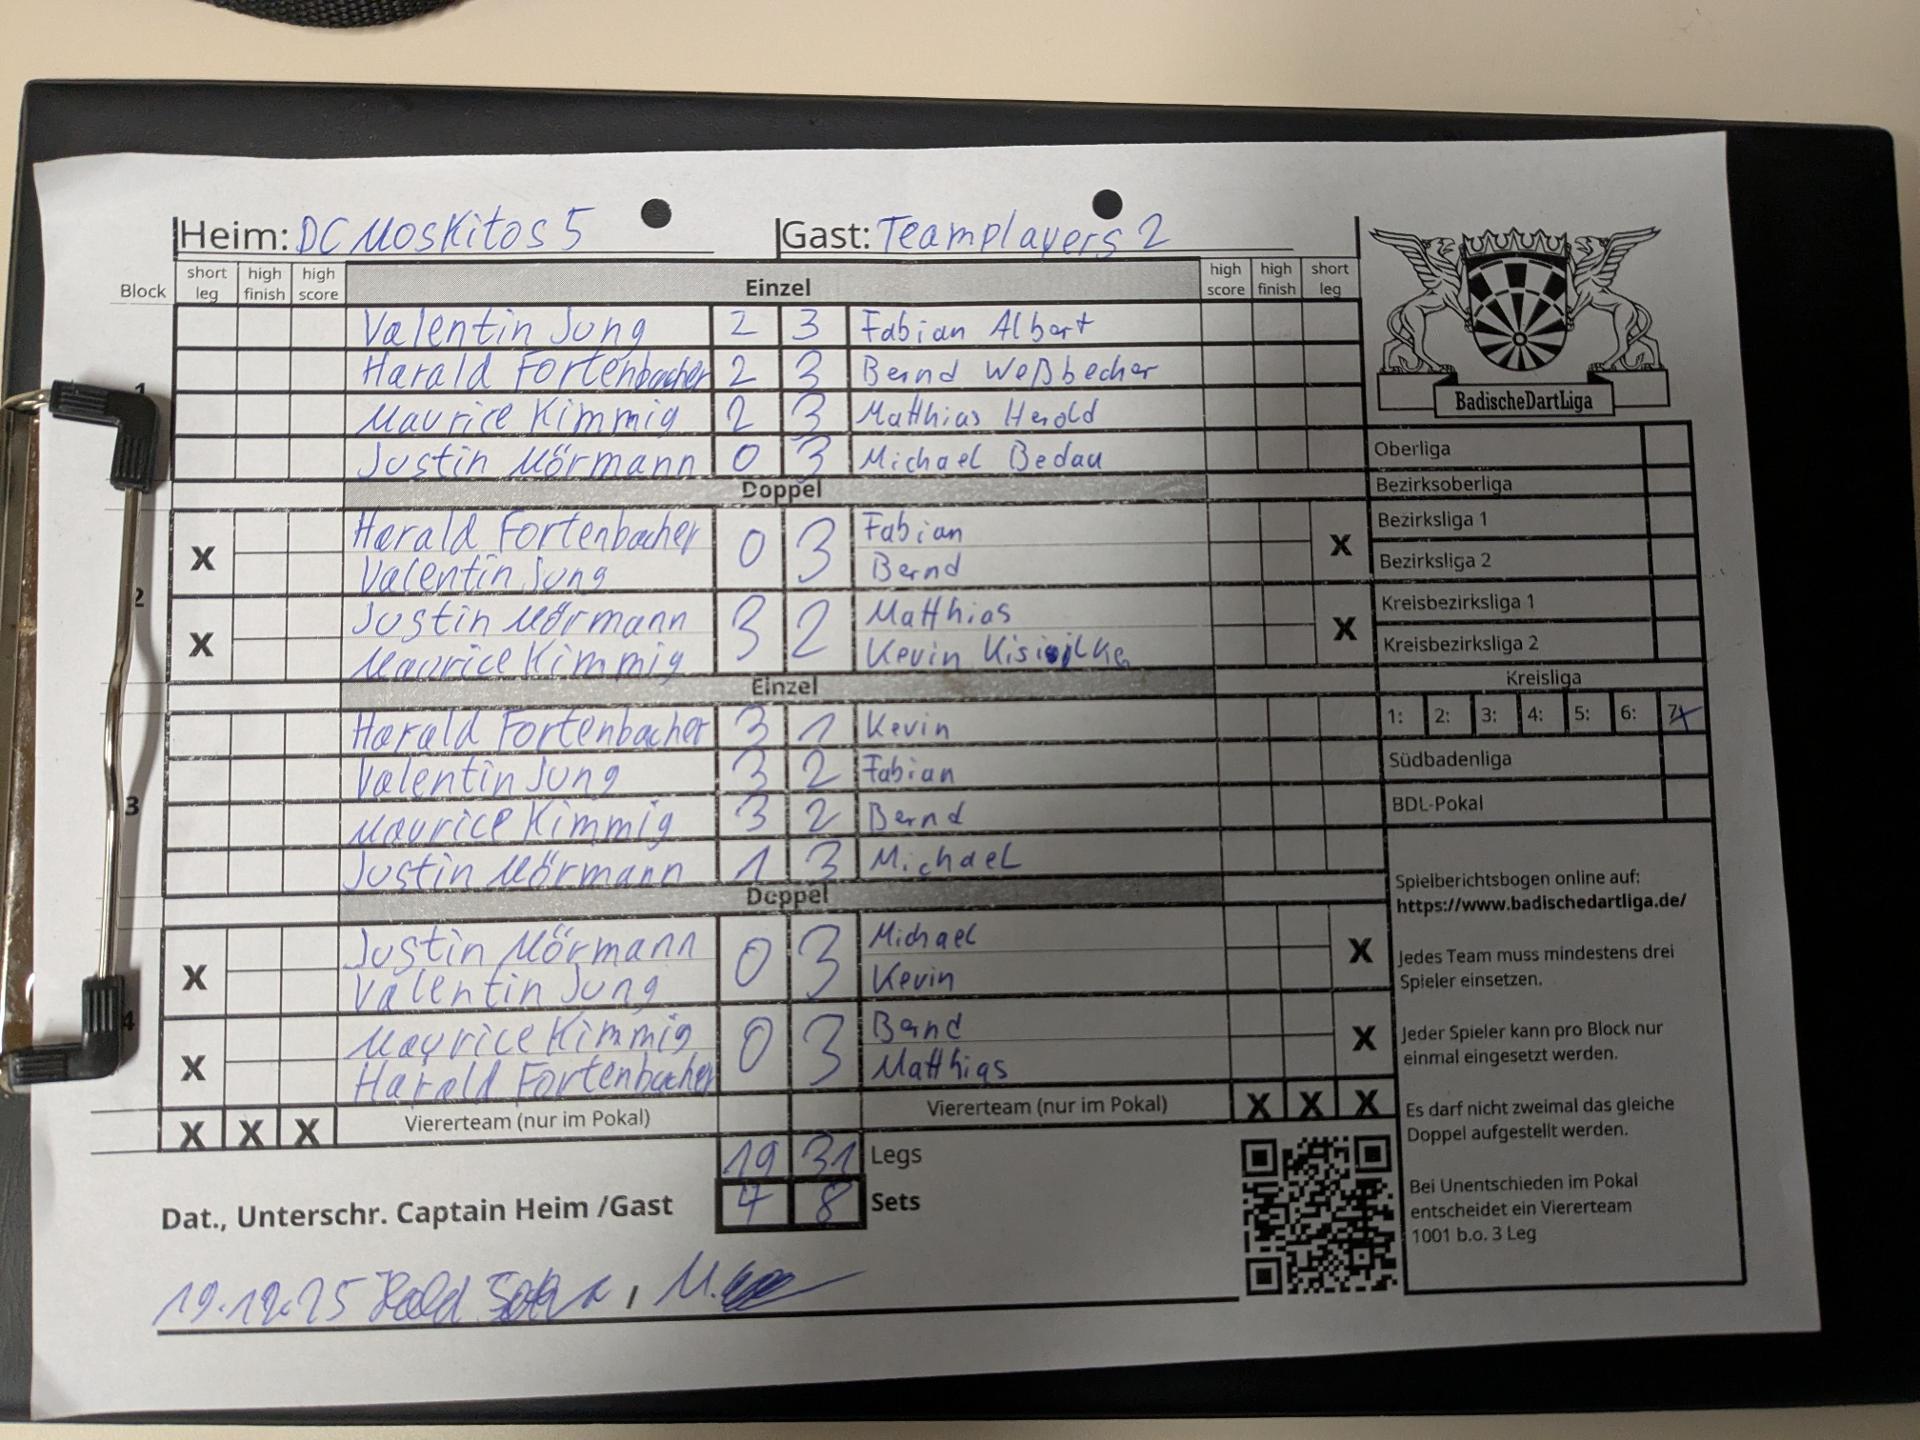 Heim: DC Moskitos 5 Gast: Teamplayers 2
Block short leg high finish high score Einzel high score high finish short leg
Valentin Jung 2 3 Fabian Albert
1 Harald Fortenbacher 2 3 Bernd Weßbecher
Maurice Kimmig 2 3 Matthias Herold
Justin Mörmann 0 3 Michael Bedau
Doppel
Harald Fortenbacher 0 3 Fabian
X X
Valentin Jung Bernd
2
Justin Mörmann 3 2 Matthias
X X
Maurice Kimmig Kevin
Einzel
Harald Fortenbacher 3 1 Kevin
Valentin Jung 3 2 Fabian
3 Maurice Kimmig 3 2 Bernd
Justin Mörmann 1 3 Michael
Doppel
Justin Mörmann 0 3 Michael
X X
Valentin Jung Kevin
4
Maurice Kimmig 0 3 Bernd
X X
Harald Fortenbacher Matthias
X X X Viererteam (nur im Pokal) Viererteam (nur im Pokal) X X X
19 31 Legs
4 8 Sets
Dat., Unterschr. Captain Heim /Gast
BadischeDartLiga
Oberliga
Bezirksoberliga
Bezirksliga 1
Bezirksliga 2
Kreisbezirksliga 1
Kreisbezirksliga 2
Kreisliga
1: 2: 3: 4: 5: 6: 7: X
Südbadenliga
BDL-Pokal
Spielberichtsbogen online auf:
https://www.badischedartliga.de/
Jedes Team muss mindestens drei
Spieler einsetzen.
Jeder Spieler kann pro Block nur
einmal eingesetzt werden.
Es darf nicht zweimal das gleiche
Doppel aufgestellt werden.
Bei Unentschieden im Pokal
entscheidet ein Viererteam
1001 b.o. 3 Leg